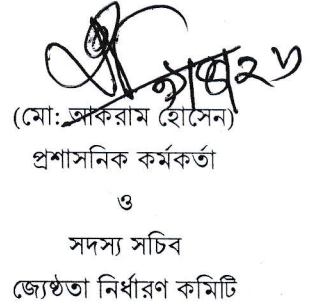 (মো: আকরাম হোসেন)
প্রশাসনিক কর্মকর্তা
ও
সদস্য সচিব
জ্যেষ্ঠতা নির্ধারণ কমিটি